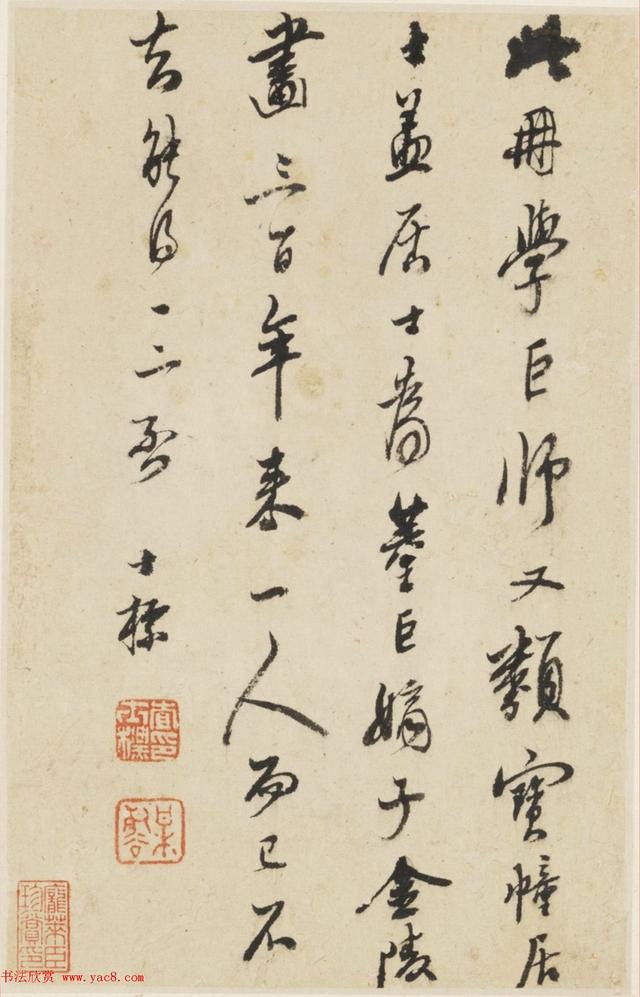 此冊學巨師又類寶幢居
士蓋居士者董巨嫡子金陵
畫三百年來一人而已不
知能得一二否
士標
查士標印
龐萊臣
珍賞印
书法欣赏 www.yac8.com